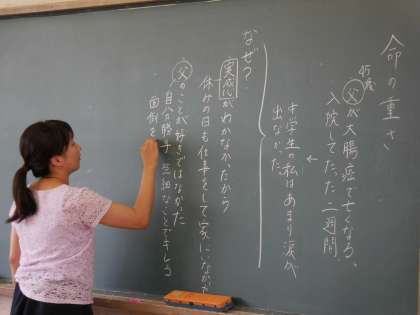 命の重さ
45歳
父が大腸癌で亡くなる、
入院してたった二週間
中学生の私はあまり涙が
出なかった
なぜ?
実感がわかなかったから
休みの日も仕事をして家にいなかった
父のことが好きではなかった
自分の勝手
面倒を